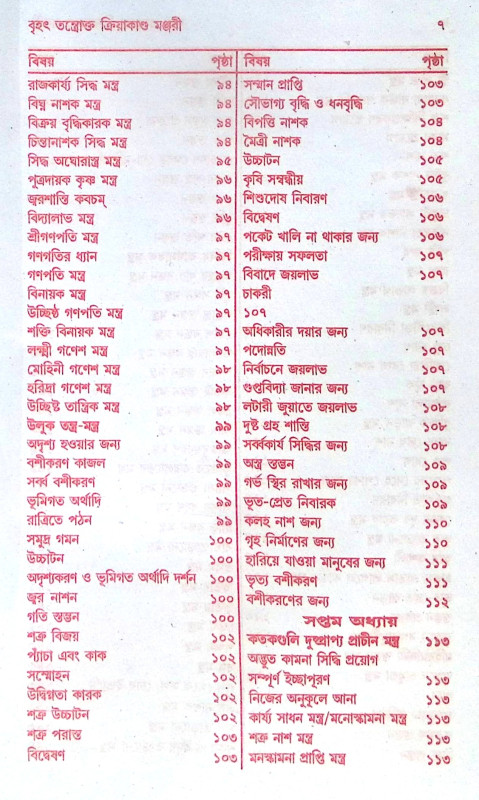 বৃহৎ তন্ত্রোক্ত ক্রিয়াকাণ্ড মঞ্জরী ৭
বিষয় পৃষ্ঠা
রাজকার্য্য সিদ্ধ মন্ত্র ৯৪
বিঘ্ন নাশক মন্ত্র ৯৪
বিক্রয় বৃদ্ধিকারক মন্ত্র ৯৪
চিন্তানাশক সিদ্ধ মন্ত্র ৯৪
সিদ্ধ অঘোরাস্ত্র মন্ত্র ৯৫
পুত্রদায়ক কৃষ্ণ মন্ত্র ৯৬
জ্বরশান্তি কবচম্ ৯৬
বিদ্যালাভ মন্ত্র ৯৬
শ্রীগণপতি মন্ত্র ৯৭
গণগতির ধ্যান ৯৭
গণপতি মন্ত্র ৯৭
বিনায়ক মন্ত্র ৯৭
উচ্ছিষ্ঠ গণপতি মন্ত্র ৯৭
শক্তি বিনায়ক মন্ত্র ৯৭
লক্ষ্মী গণেশ মন্ত্র ৯৭
মোহিনী গণেশ মন্ত্র ৯৮
হরিদ্রা গণেশ মন্ত্র ৯৮
উচ্ছিষ্ট তান্ত্রিক মন্ত্র ৯৮
উলুক তন্ত্র-মন্ত্র ৯৯
অদৃশ্য হওয়ার জন্য ৯৯
বশীকরণ কাজল ৯৯
সর্ব্ব বশীকরণ ৯৯
ভূমিগত অর্থাদি ৯৯
রাত্রিতে পঠন ৯৯
সমুদ্র গমন ১০০
উচ্চাটন ১০০
অদৃশ্যকরণ ও ভূমিগত অর্থাদি দর্শন ১০০
জ্বর নাশন ১০০
গতি স্তম্ভন ১০০
শত্রু বিজয় ১০২
প্যাঁচা এবং কাক ১০২
সম্মোহন ১০২
উদ্বিগ্নতা কারক ১০২
শত্রু উচ্চাটন ১০২
শত্রু পরাস্ত ১০৩
বিদ্বেষণ ১০৩
বিষয় পৃষ্ঠা
সম্মান প্রাপ্তি ১০৩
সৌভাগ্য বৃদ্ধি ও ধনবৃদ্ধি ১০৩
বিপত্তি নাশক ১০৪
মৈত্রী নাশক ১০৪
উচ্চাটন ১০৫
কৃষি সম্বন্ধীয় ১০৫
শিশুদোষ নিবারণ ১০৬
বিদ্বেষণ ১০৬
পকেট খালি না থাকার জন্য ১০৬
পরীক্ষায় সফলতা ১০৭
বিবাদে জয়লাভ ১০৭
চাকরী
১০৭
অধিকারীর দয়ার জন্য ১০৭
পদোন্নতি ১০৭
নির্বাচনে জয়লাভ ১০৭
গুপ্তবিদ্যা জানার জন্য ১০৭
লটারী জুয়াতে জয়লাভ ১০৮
দুষ্ট গ্রহ শান্তি ১০৮
সর্ব্বকার্য সিদ্ধির জন্য ১০৮
অস্ত্র স্তম্ভন ১০৯
গর্ভ স্থির রাখার জন্য ১০৯
ভূত-প্রেত নিবারক ১০৯
কলহ নাশ জন্য ১১০
গৃহ নির্মাণের জন্য ১১০
হারিয়ে যাওয়া মানুষের জন্য ১১১
ভৃত্য বশীকরণ ১১১
বশীকরণের জন্য ১১২
সপ্তম অধ্যায়
কতকগুলি দুষ্প্রাপ্য প্রাচীন মন্ত্র ১১৩
অদ্ভুত কামনা সিদ্ধি প্রয়োগ
সম্পূর্ণ ইচ্ছাপূরণ ১১৩
নিজের অনুকূলে আনা ১১৩
কার্য্য সাধন মন্ত্র/মনোস্কামনা মন্ত্র ১১৩
শত্রু নাশ মন্ত্র ১১৩
মনস্কামনা প্রাপ্তি মন্ত্র ১১৩